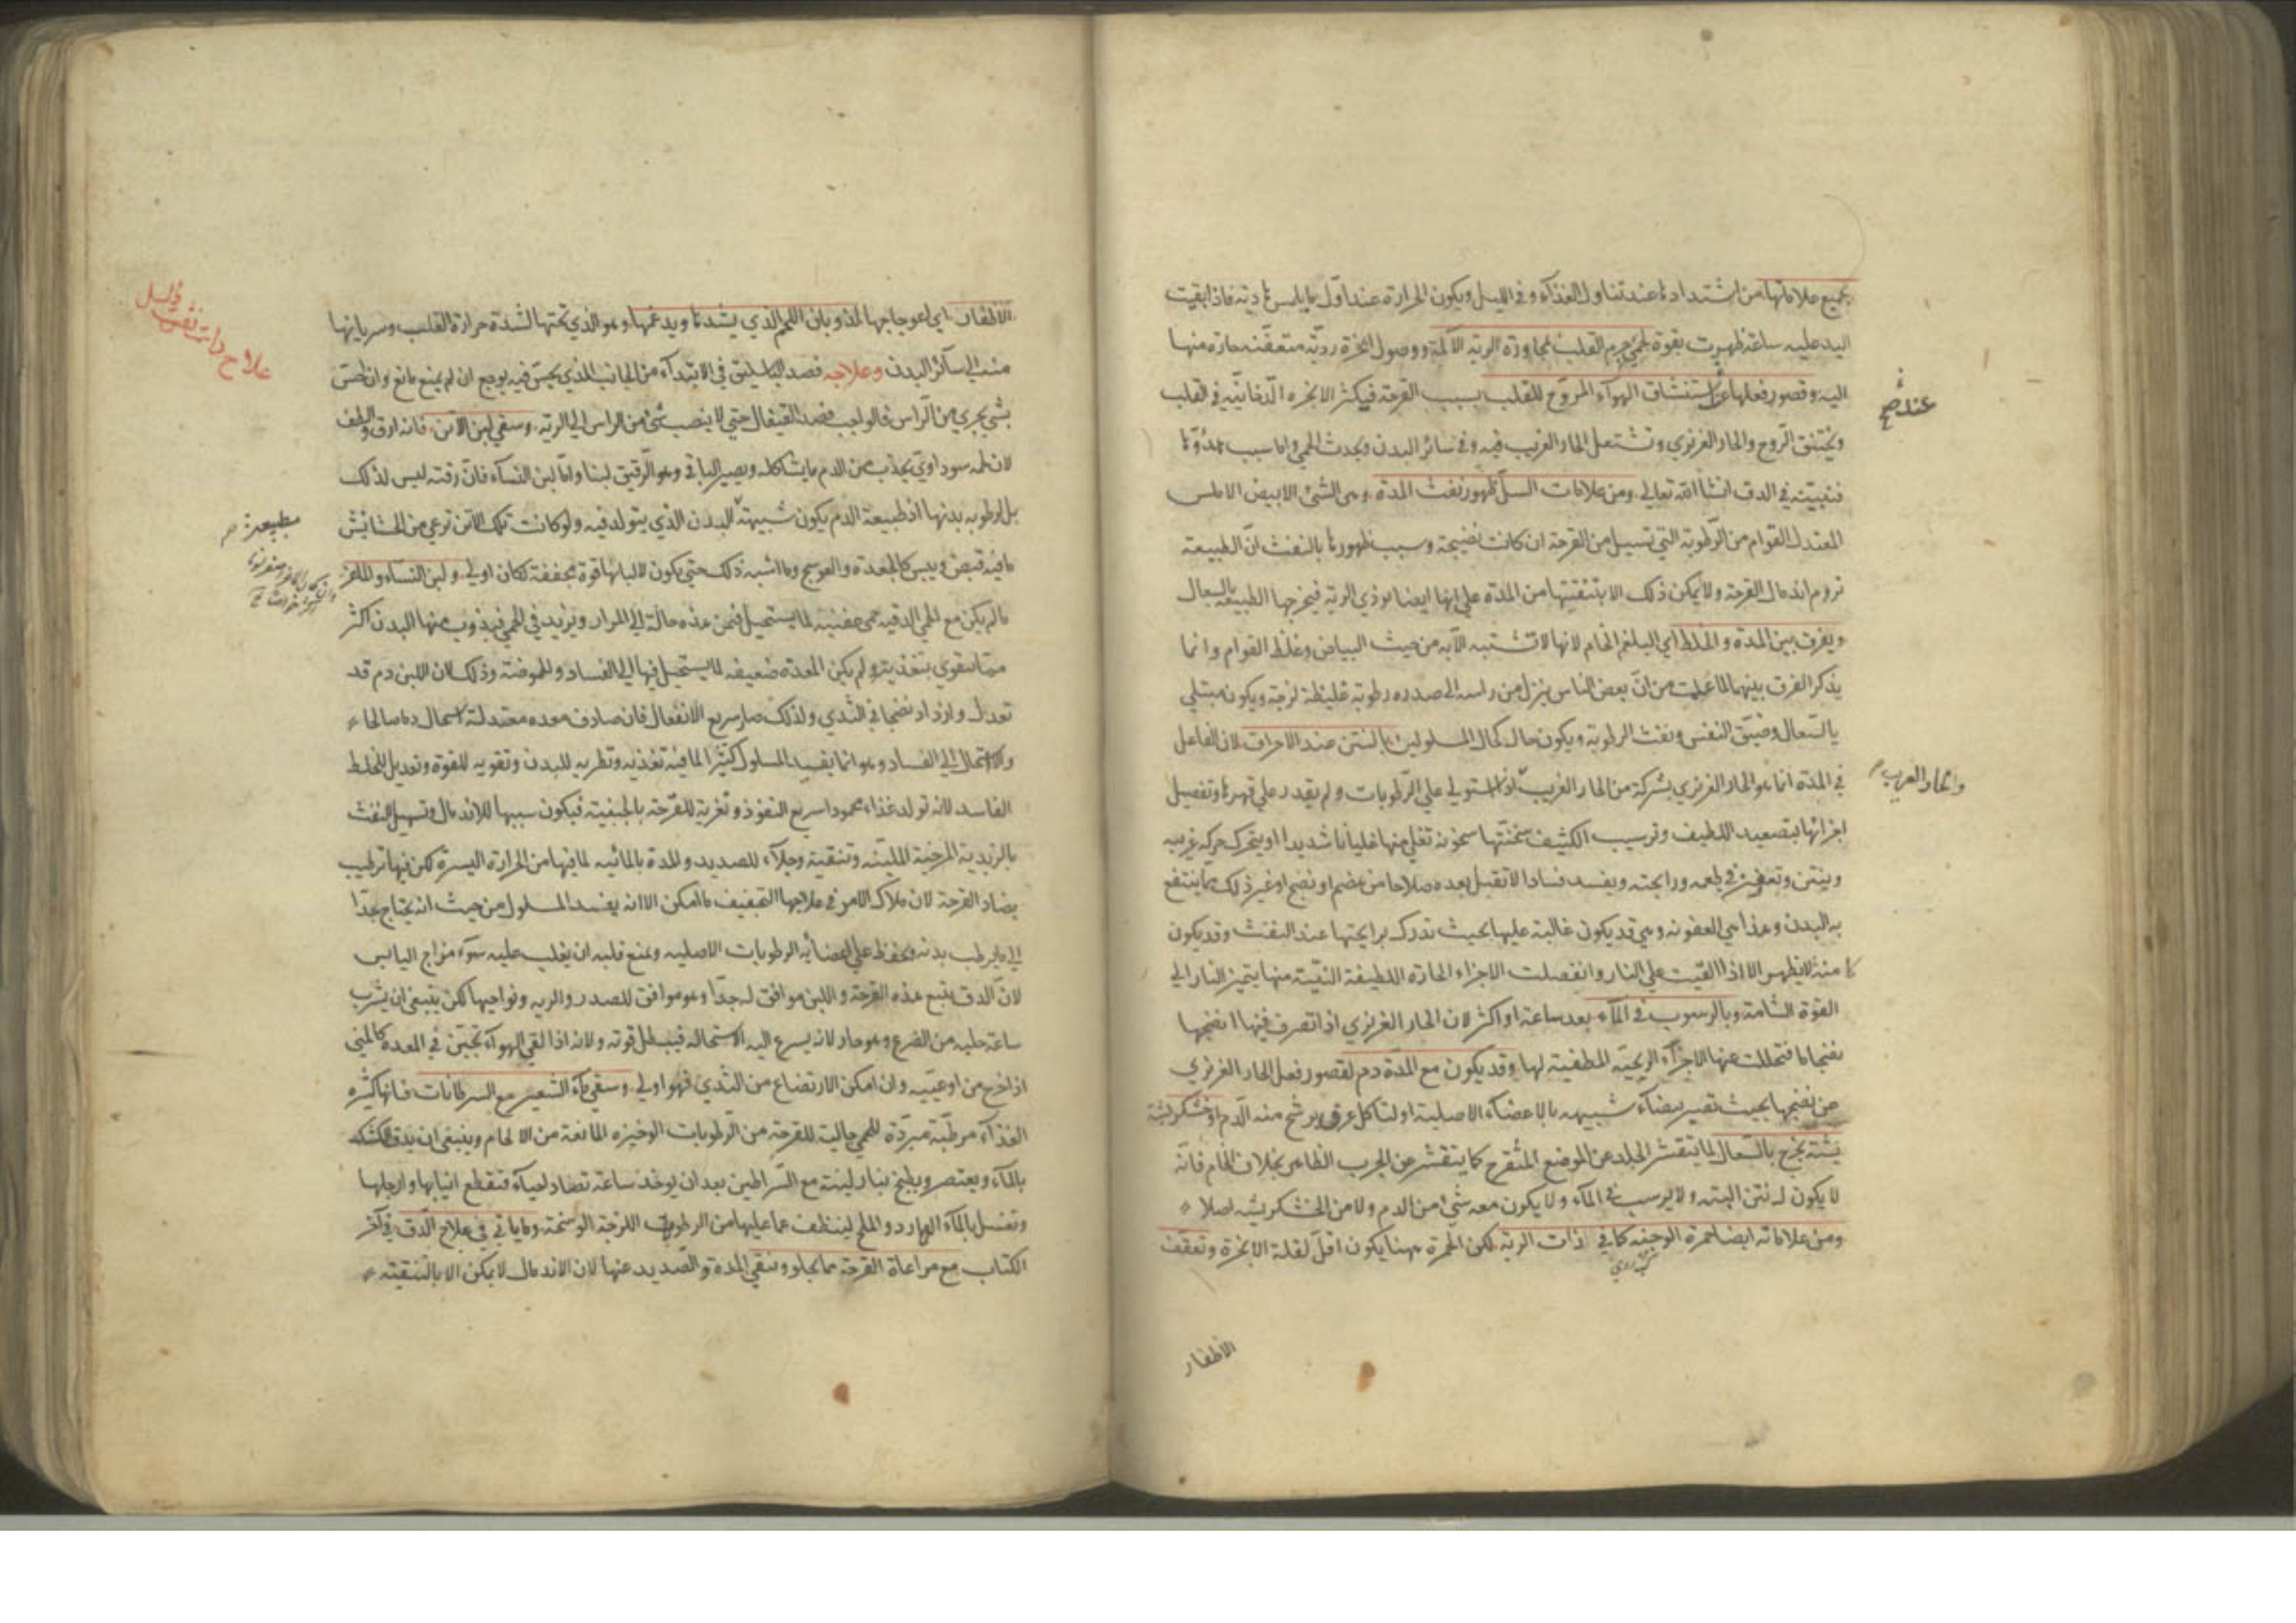 بجميع علاماتها من اشتدادها عند تناول الغذاء وفي الليل ويكون الحرارة عند اول ما يلمس هادية فاذا بقيت
اليد عليه ساعة ظهرت بقوة لحمي جرم القلب لمجاورة الرية الآلمة ووصول ابخرة ردية متعفنة حارة منها
اليه وقصور فعلها عن استنشاق الهواء المروح للقلب بسبب القرحة فيكثر الابخرة الدخانية في القلب
عنده صح
ويختنق الروح والحار الغريزي وتشتعل الحار الغريب فيه وفي سائر البدن ويحدث الحمي واما سبب هدوها
فنبينه في الدق انشا الله تعالي ومن علامات السل ظهور نفث المدة وهي الشئ الابيض الاملس
المعتدل القوام من الرطوبة التي تسيل من القرحة ان كانت نضيجة وسبب ظهورها بالنفث ان الطبيعة
تروم اندمال القرحة ولا يمكن ذلك الا بتنقيتها من المدة علي انها ايضا موذي الرية فيخرجها الطبيعة بالسعال
ويفرق بين المدة والخلط اي البلغم الخام لانها لا تشتبه الا به من حيث البياض وغلظ القوام وانما
يذكر الفرق بينهما لما علمت من ان بعض الناس ينزل من راسه الي صدره رطوبة غليظة لزجة ويكون مبتلي
بالسعال وضيق النفس ونفث الرطوبة ويكون حاله كحال المسلولين بالنتن عند الاحراق لان الفاعل
في المدة انما هو الحار الغريزي بشركة من الحار الغريب اذا استولي علي الرطوبات ولم يقدر علي قهرها وتفصيل
والحار الغريب
اجزائها بتصعيد اللطيف وترسيب الكثيف سخنتها سخونة تغلي منها غليانا شديدا او يتحرك حركة غريبة
وينتن وتعفن في طعمه ورايحته ويفسد فسادا لا تقبل بعده صلاحا من هضم او نضج او غير ذلك مما ينتفع
به البدن وهذا هي العفونة وهي قد يكون غالبة عليها بحيث تدرك برايحتها عند النفث وقد يكون
كامنة لا يظهر الا اذا القيت علي النار وانفصلت الاجزاء الحارة اللطيفة النتنة منها بتميز النار الي
القوة الشامة وبالرسوب في الماء بعد ساعة او اكثر لان الحار الغريزي اذا تصرف فيها انضجها
نضجا ما فتحللت عنها الاجزاء الريحية المطفية لها وقد يكون مع المدة دم لقصور فعل الحار الغريزي
عن نضجها بحيث تصير بيضاء شبيهة بالاعضاء الاصلية او لتاكل عرق يرشح منه الدم او خشكريشة
يشته يخرج بالسعال لما يتقشر الجلد عن الموضع المتقرح كما يتقشر عن الجرب الظاهر بخلاف الخام فانه
لا يكون له نتن البتة ولا يرسب في الماء ولا يكون معه شئ من الدم ولا من الخشكريشة اصلا
ومن علاماته ايضا حمرة الوجنة كما في ذات الرية لكن الحمرة ههنا يكون اقل لقلة الابخرة وتعقف
الاظفار
الاظفار اي اعوجاجها لذوبان اللحم الذي يشدها ويدعمها وهو الذي تحتها لشدة حرارة القلب وسريانها
علاج
منه الي سائر البدن وعلاجه فصد الباسليق في الابتداء من الجانب الذي يحس فيه بوجع ان لم يمنع مانع وان احس
بشئ يجري من الراس فالواجب فصد القيفال حتي لا ينصب شئ من الراس الي الرية وسقي لبن الاتن فانه ارق والطف
لان لحمه سوداوي يجذب من الدم ما يشاكله ويصير الباقي وهو الرقيق لبنا واما لبن النساء فان رقته ليس لذلك
بل لرطوبة بدنها اذ طبيعة الدم يكون شبيهة البدن الذي يتولد فيه ولو كانت تلك الاتن ترعي من الحشائش
ما فيه قبض ويبس كالجعدة والعوسج وما اشبه ذلك حتي يكون لالبانها قوة مجففة لكان اولي ولبن النساء والماعز
ما لم يكن مع الحمي الدقية حمي عفنية لما يستحيل فيمن هذه حالة الي المرار ويزيد في الحمي فيذوب منها البدن اكثر
مما يتقوي بتغذيته ولم يكن المعدة ضعيفة لما يستحيل فيها الي الفساد والحموضة وذلك لان اللبن دم قد
تعدل وازداد نضجا في الثدي ولذلك صار سريع الانفعال فان صادف معدة معتدلة استحال دما صالحا
والا استحال الي الفساد وهو انما يفيد المسلول كثيرا لما فيه تغذية وتطريه للبدن وتقوية للقوة وتعديل للخلط
الفاسد لانه تولد غذاء محمودا سريع النفوذ وتغرية للقرحة بالجبنية فيكون سببها للاندمال وتسهيل النفث
بالزبدية المرخية الملينة وتنقية وجلاء للصديد والمدة بالمائية لما فيها من الحرارة اليسيرة لكن فيها ترطيب
يضاد القرحة لان ملاك الامر في علاجها التجفيف ما امكن الا انه يفيد المسلول من حيث انه يحتاج جدا
الي ما يرطب بدنه ويحفظ علي اعضائه الرطوبات الاصلية ويمنع قلبه ان يغلب عليه سوء مزاج اليابس
لان الدق يتبع هذه القرحة واللبن موافق له جدا وهو موافق للصدر والرية ونواحيها لكن ينبغي ان يشرب
ساعة حلبه من الضرع وهو حار لانه يسرع اليه الاستحالة فيبطل قوته ولانه اذا لقي الهواء تجبن في المعدة كالمني
اذا خرج من اوعيته وان امكن الارتضاع من الثدي فهو اولي وسقي ماء الشعير مع السرطانات فانها كثيرة
الغذاء مرطبة مبردة للحمي جالية للقرحة من الرطوبات الوخيزة المانعة من الالحام وينبغي ان يدق الكشك
بالماء ويعتصر ويطبخ بنار لينة مع السراطين بعد ان يوخذ ساعة تصاد لحياة فتقطع انيابها وارجلها
وتغسل بالماء البارد والملح لينظف عما عليها من الرطوبات اللزجة الوسخة وما ياتي في علاج الدق في آخر
الكتاب مع مراعاة القرحة بما يجلو وينقي المدة والصديد عنها لان الاندمال لا يمكن الا بالتنقية